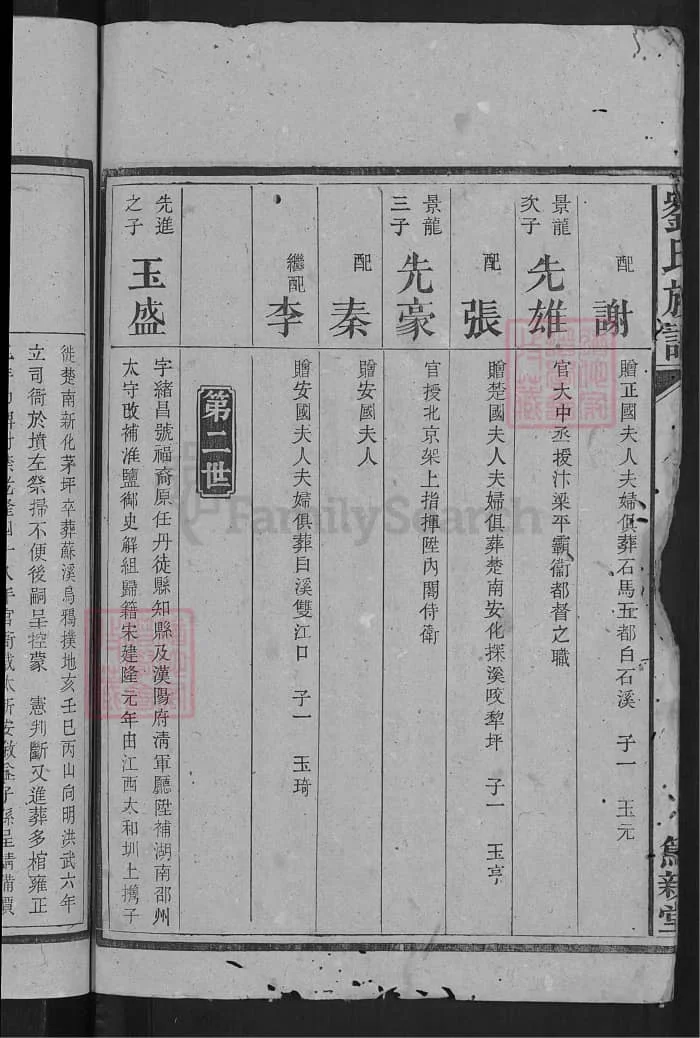 劉氏族譜
篤新堂
配 謝 贈正國夫人夫婦俱葬石馬五都白石溪 子一 玉元
景龍次子 先雄 官大中丞授汴梁平霸衞都督之職
配 張 贈楚國夫人夫婦俱葬楚南安化探溪咬犁坪 子一 玉亨
景龍三子 先豪 官授北京架上指揮陞內閣侍衛
配 秦 贈安國夫人
繼配 李 贈安國夫人夫婦俱葬白溪雙江口 子一 玉琦
第二世
先進之子 玉盛 字緒昌號福裔原任丹徒縣知縣及漢陽府清軍廳陞補湖南邵州
太守改補淮鹽御史解組歸籍宋建隆元年由江西太和圳上攜子
徙楚南新化茅坪卒葬蘇溪烏鴉撲地亥壬巳丙山向明洪武六年
立司衙於墳左祭掃不便後嗣呈控蒙 憲判斷又進葬多棺雍正
FamilySearch